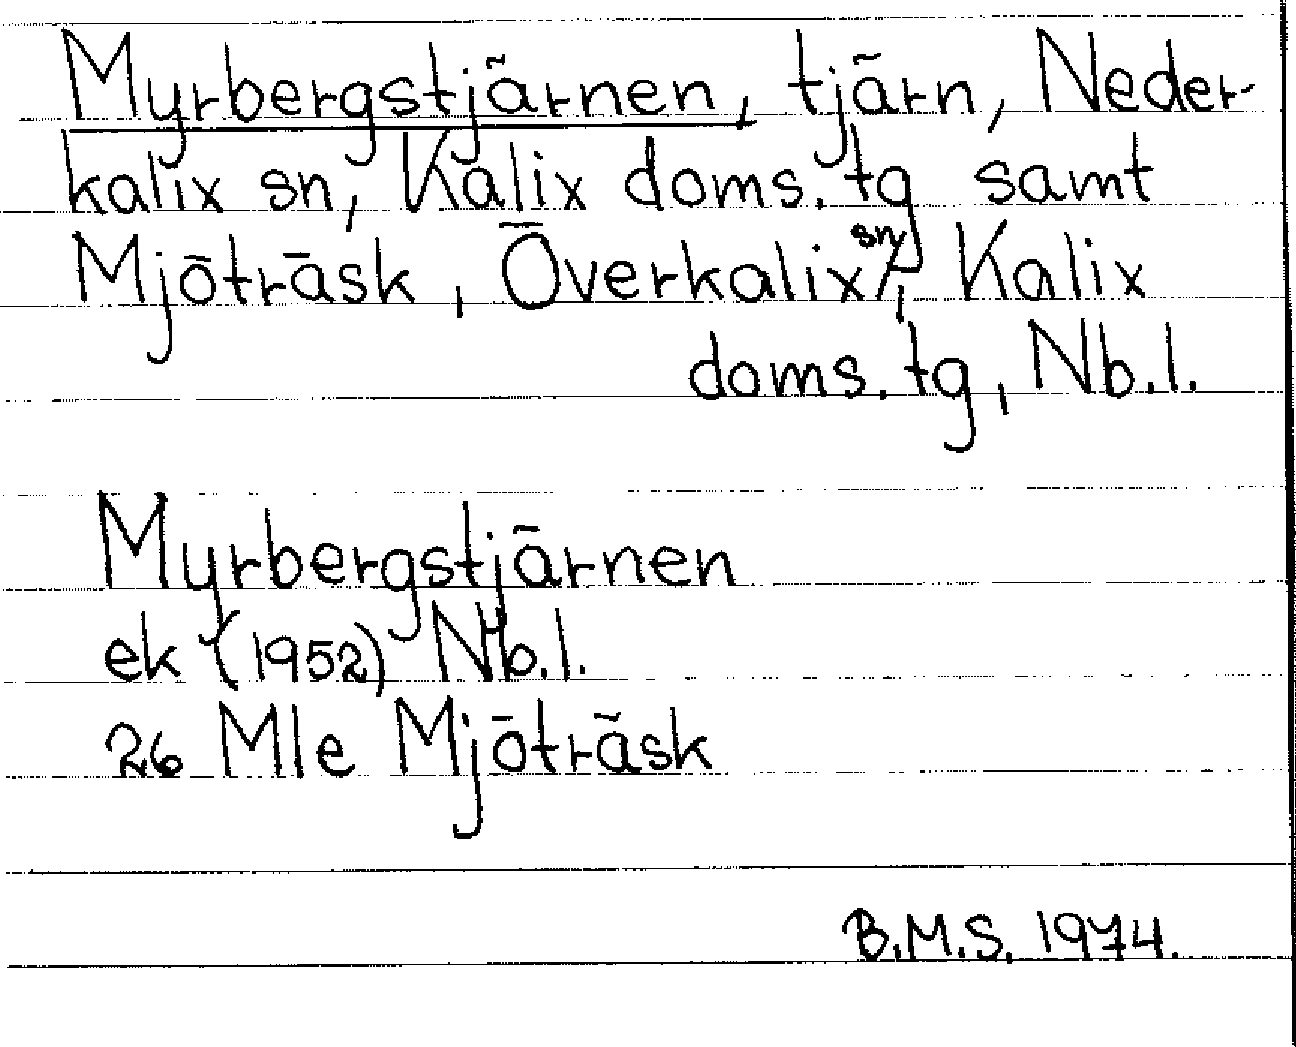 Myrbergstjärnen, tjärn, Neder-
kalix sn, Kalix doms. tg samt
Mjöträsk, Överkalix sn, Kalix
doms. tg, Nb.l.
Myrbergstjärnen
ek (1952) Nb.l.
26 Mle Mjöträsk
B.M.S. 1974.